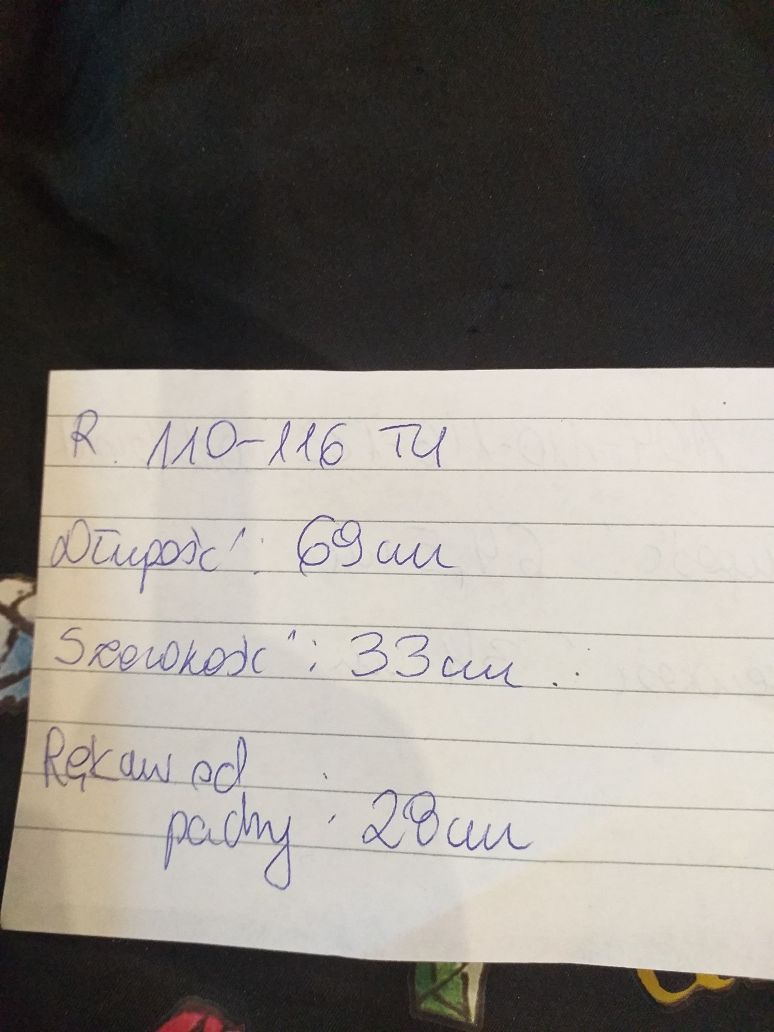 R. 110-116 TU
Długość: 69cm
Szerokość: 33cm
Rękaw od
pachy: 28cm